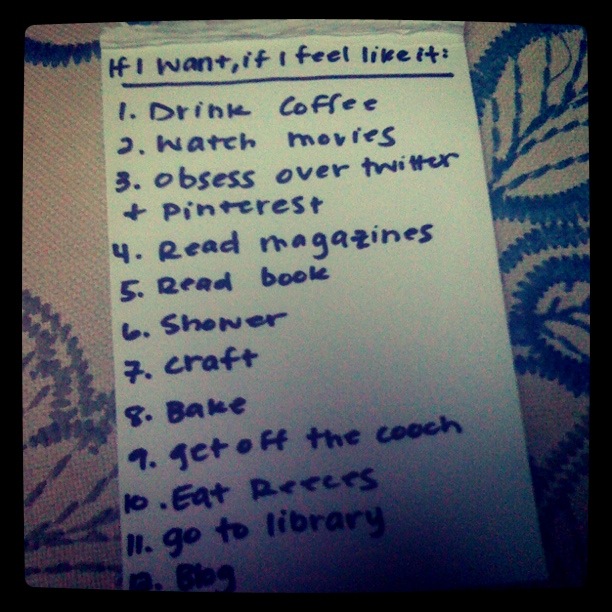 If I want, if I feel like it:
1. Drink Coffee
2. Watch movies
3. Obsess over twitter
+ Pinterest
4. Read magazines
5. Read book
6. Shower
7. Craft
8. Bake
9. get off the cooch
10. Eat Reeces
11. go to library
12. Blog